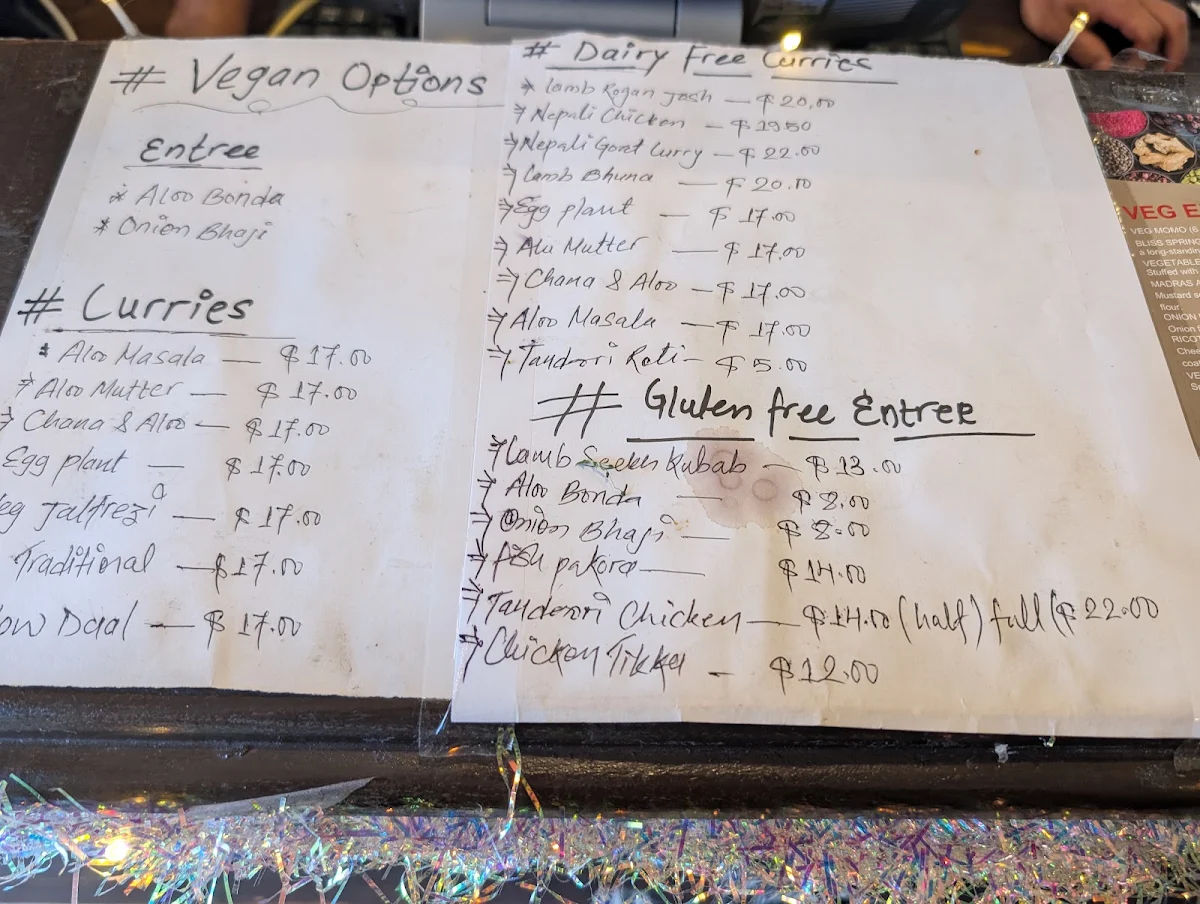 # Vegan Options
Entree
* Aloo Bonda
* Onion Bhaji
# Curries
* Aloo Masala — $17.00
* Aloo Mutter — $17.00
Chana & Aloo — $17.00
Egg plant — $17.00
eg Jalfrezi — $17.00
Traditional — $17.00
ow Daal — $17.00
# Dairy Free Curries
* Lamb Rogan Josh — $20.00
Nepali Chicken — $19.50
Nepali Goat Curry — $22.00
Lamb Bhuna — $20.00
Egg plant — $17.00
Alu Mutter — $17.00
Chana & Aloo — $17.00
Aloo Masala — $17.00
Tandoori Roti — $5.00
# Gluten free Entree
Lamb Seekh Kubab — $13.00
Aloo Bonda — $8.00
Onion Bhaji — $8.00
Fish pakora — $14.00
Tandoori Chicken — $14.00 (half) full ($22.00
Chicken Tikka — $12.00
VEG E
VEG MOMO (6
BLISS SPRING
a long-standin
VEGETABLE
Stuffed with
MADRAS
Mustard se
flour.
ONION
Onion
RICOT
Chee
coa
VE